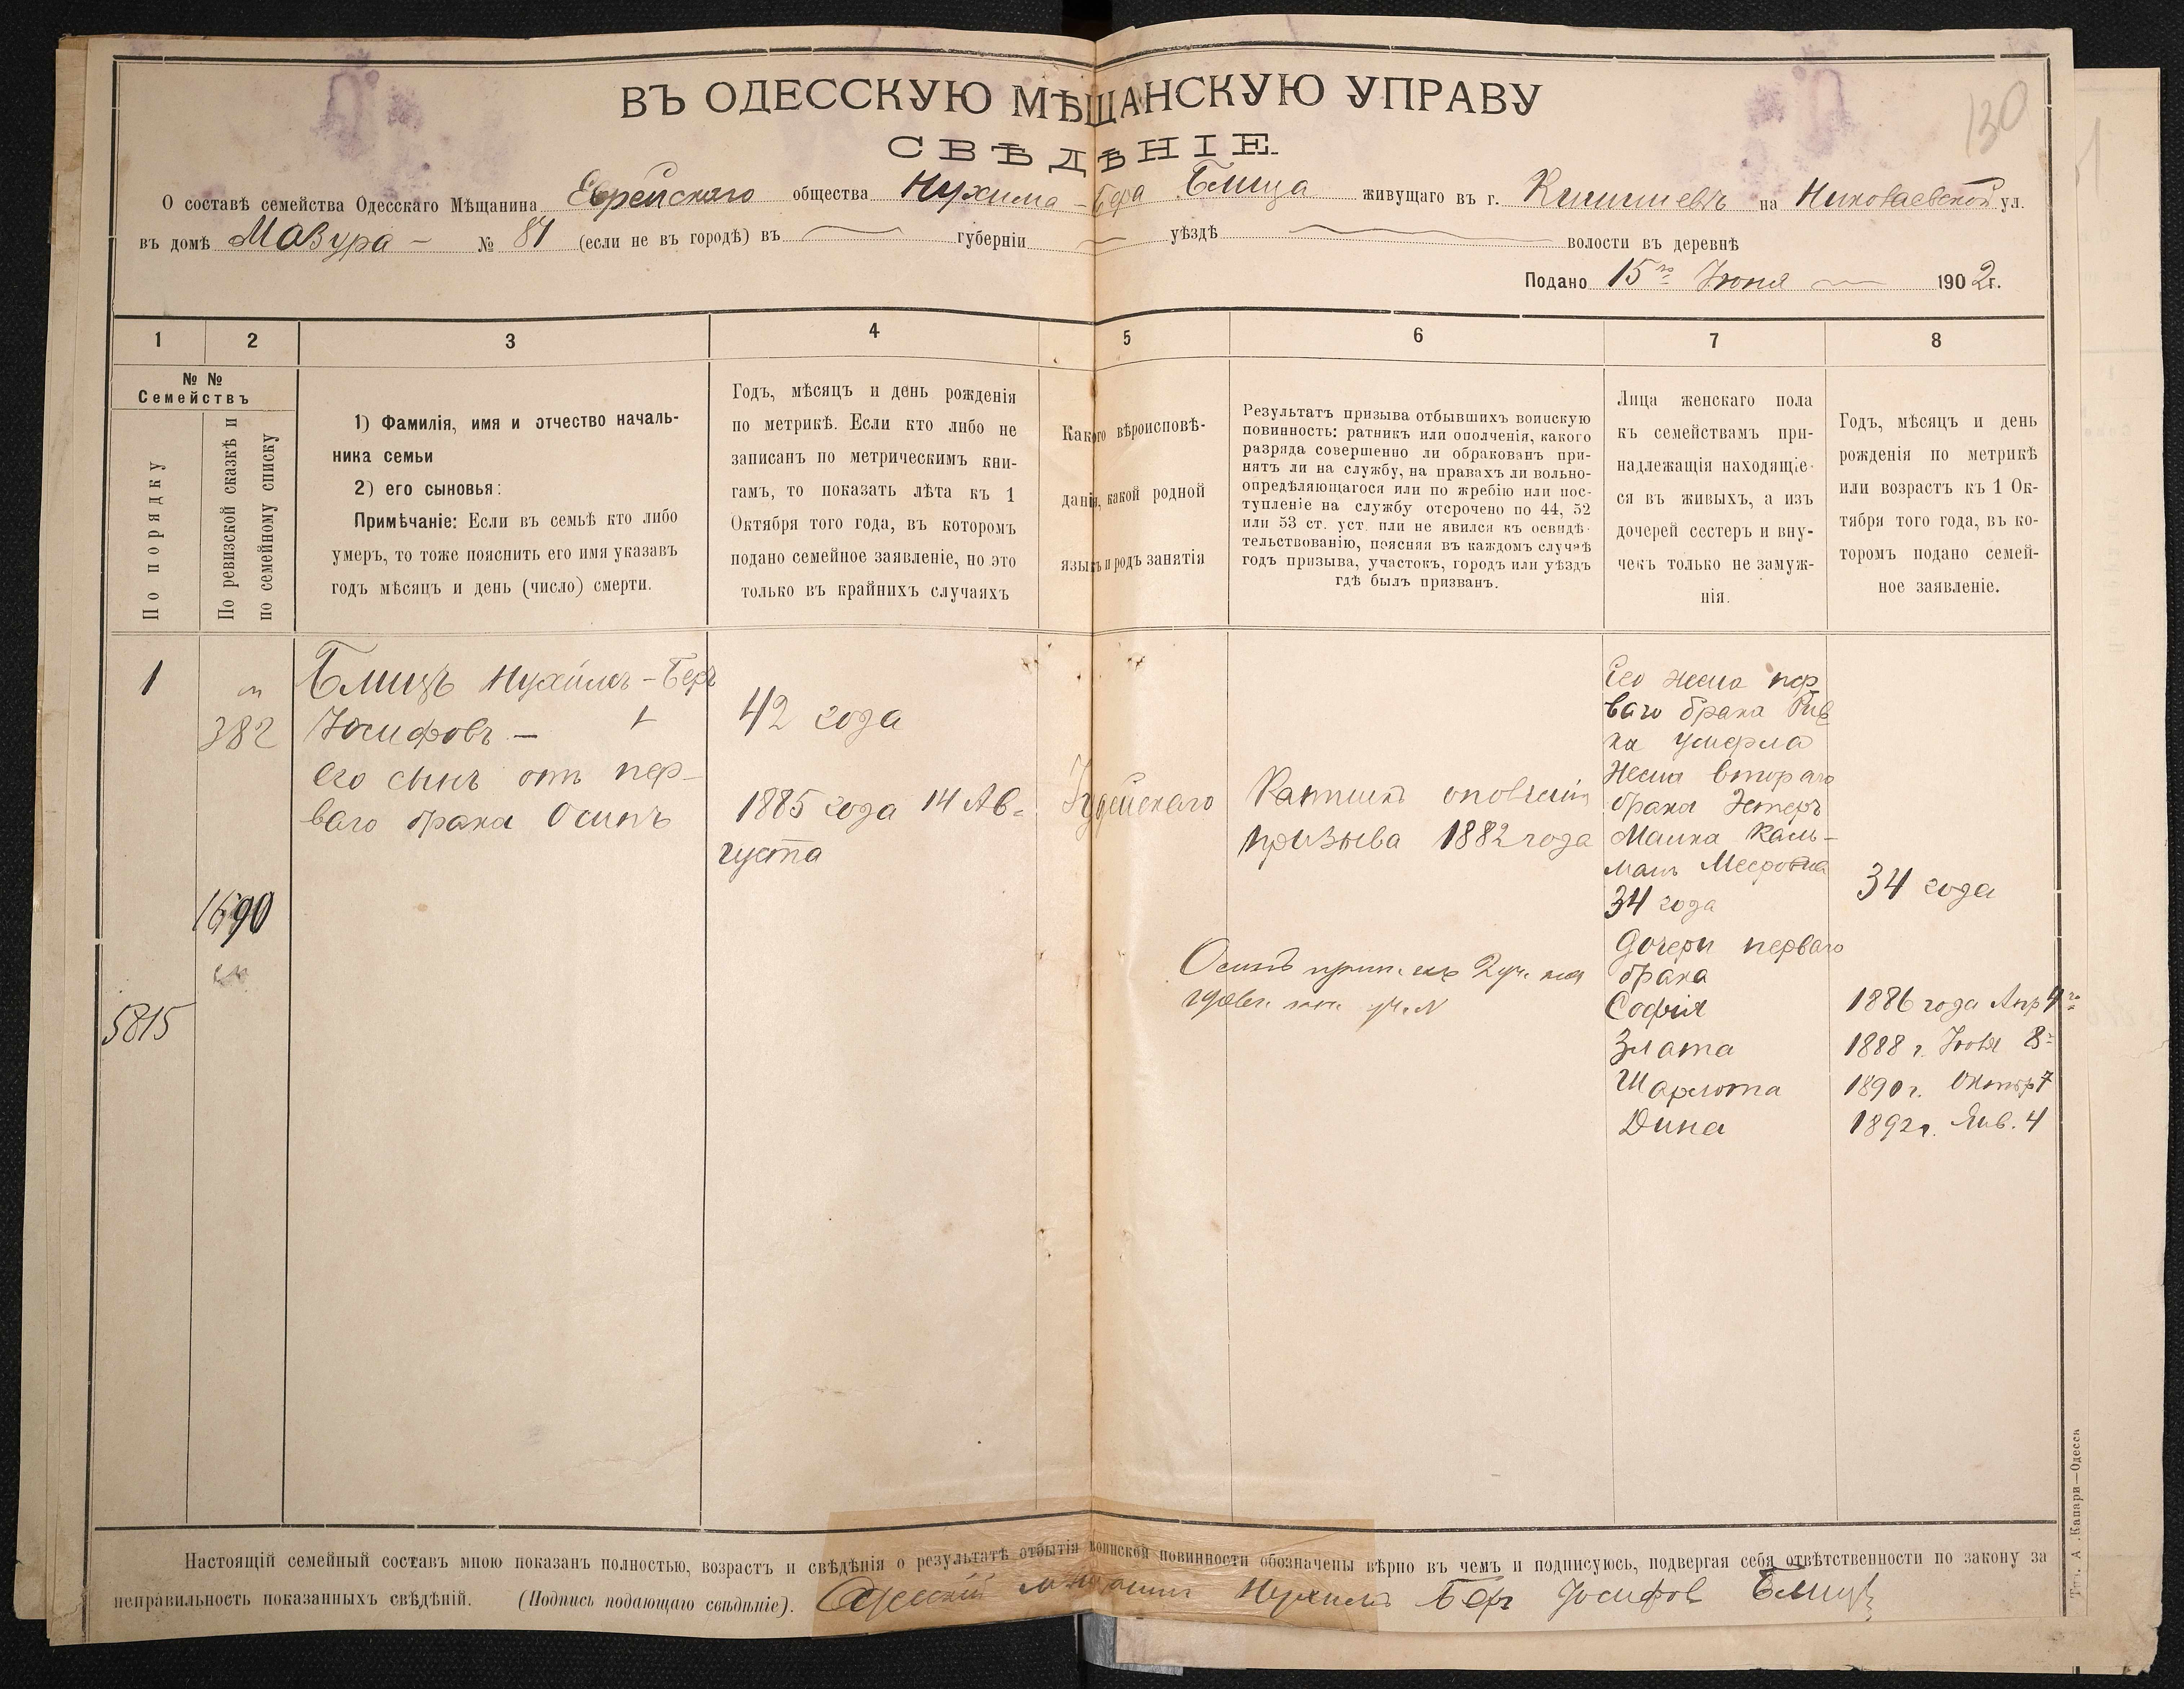 130
ВЪ ОДЕССКУЮ МѢЩАНСКУЮ УПРАВУ
СВѢДѢНІЕ
О составѣ семейства Одесскаго Мѣщанина Еврейскаго общества Нухима-Бера Блица живущаго въ г. Кишиневѣ на Николаевской ул.
въ домѣ Мазура — № 81 (если не въ городѣ) въ губерніи уѣздѣ волости въ деревнѣ
Подано 15го Іюня — 1902г.
1 2 3 4 5 6 7 8
№ №
Семействъ
По порядку
По ревизской сказкѣ и
по семейному списку
1) Фамилія, имя и отчество началь-
ника семьи
2) его сыновья:
Примѣчаніе: Если въ семьѣ кто либо
умеръ, то тоже пояснить его имя указавъ
годъ мѣсяцъ и день (число) смерти.
Годъ, мѣсяцъ и день рожденія
по метрикѣ. Если кто либо не
записанъ по метрическимъ кни-
гамъ, то показать лѣта къ 1
Октября того года, въ которомъ
подано семейное заявленіе, но это
только въ крайнихъ случаяхъ
Какого вѣроисповѣ-
данія, какой родной
языкъ и родъ занятія
Результатъ призыва отбывшихъ воинскую
повинность: ратникъ или ополченія, какого
разряда совершенно ли обракованъ при-
нятъ ли на службу, на правахъ ли вольно-
опредѣляющагося или по жребію или пос-
тупленіе на службу отсрочено по 44, 52
или 53 ст. уст. или не явился къ освидѣ-
тельствованію, поясняя въ каждомъ случаѣ
годъ призыва, участокъ, городъ или уѣздъ
гдѣ былъ призванъ.
Лица женскаго пола
къ семействамъ при-
надлежащія находящіе-
ся въ живыхъ, а изъ
дочерей сестеръ и вну-
чекъ только не замуж-
нія.
Годъ, мѣсяцъ и день
рожденія по метрикѣ
или возрастъ къ 1 Ок-
тября того года, въ ко-
торомъ подано семей-
ное заявленіе.
1
382
1690
5815
Блицъ Нухимъ-Беръ
Іосифовъ —
его сынъ отъ пер-
ваго брака Осипъ
42 года
1885 года 14 Ав-
густа
Іудейскаго
Ратникъ ополченія
призыва 1882 года
Осипъ
Его жена пер
ваго брака Рив
ка умерла
Жена втораго
брака Эстеръ
Малка Каль-
манъ
34 года
Дочери перваго
брака
Софія
Злата
Шарлота
Дина
34 года
1886 года Апр 4го
1888 г. 8
1890 г. Октяр 7
1892 г. Янв. 4
Настоящій семейный составъ мною показанъ полностью, возрастъ и свѣдѣнія о результатѣ отбытія воинской повинности обозначены вѣрно въ чемъ и подписуюсь, подвергая себя отвѣтственности по закону за
неправильность показанныхъ свѣдѣній. (Подпись подающаго свѣдѣніе). Одесскій мѣщанинъ Нухимъ Беръ Іосифов Блицъ
Тип. А. Капари—Одесса